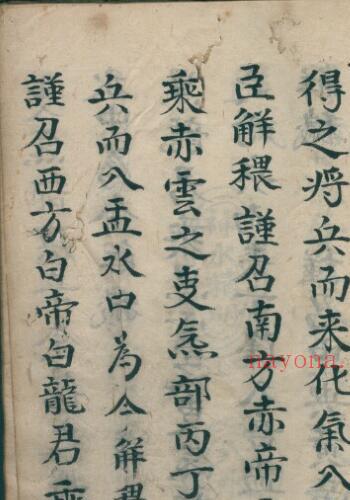 得之将兵而来化氣入
臣解穢謹召南方赤帝
乘赤雲之吏炁部丙丁
兵而入盂水口為今解
謹召西方白帝白龍君
nayona.